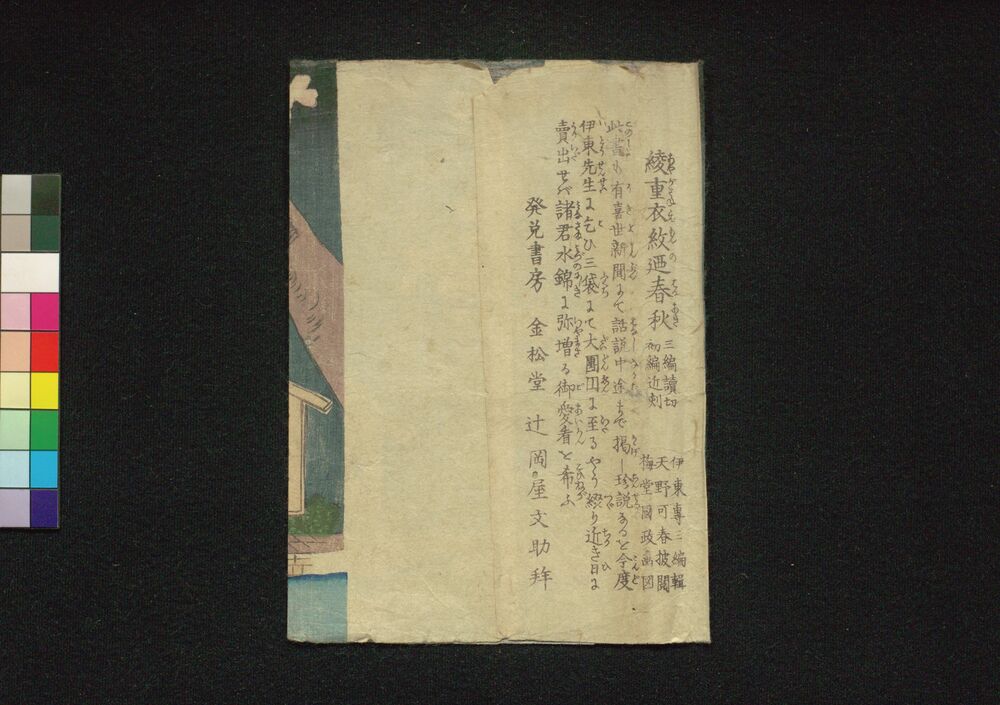 綾重衣紋廼春秋 三編讀切 初編近刻
伊東專三編輯
天野可春披閲
梅堂國政画図
此書ハ有喜世新聞にて話説中途まで掲し珍説なるを今度
伊東先生に乞ひ三袋にて大團円に至るやう綴り近き日に
賣出せバ諸君水錦に弥増る御愛看を希ふ
発兌書房 金松堂 辻岡屋文助拜